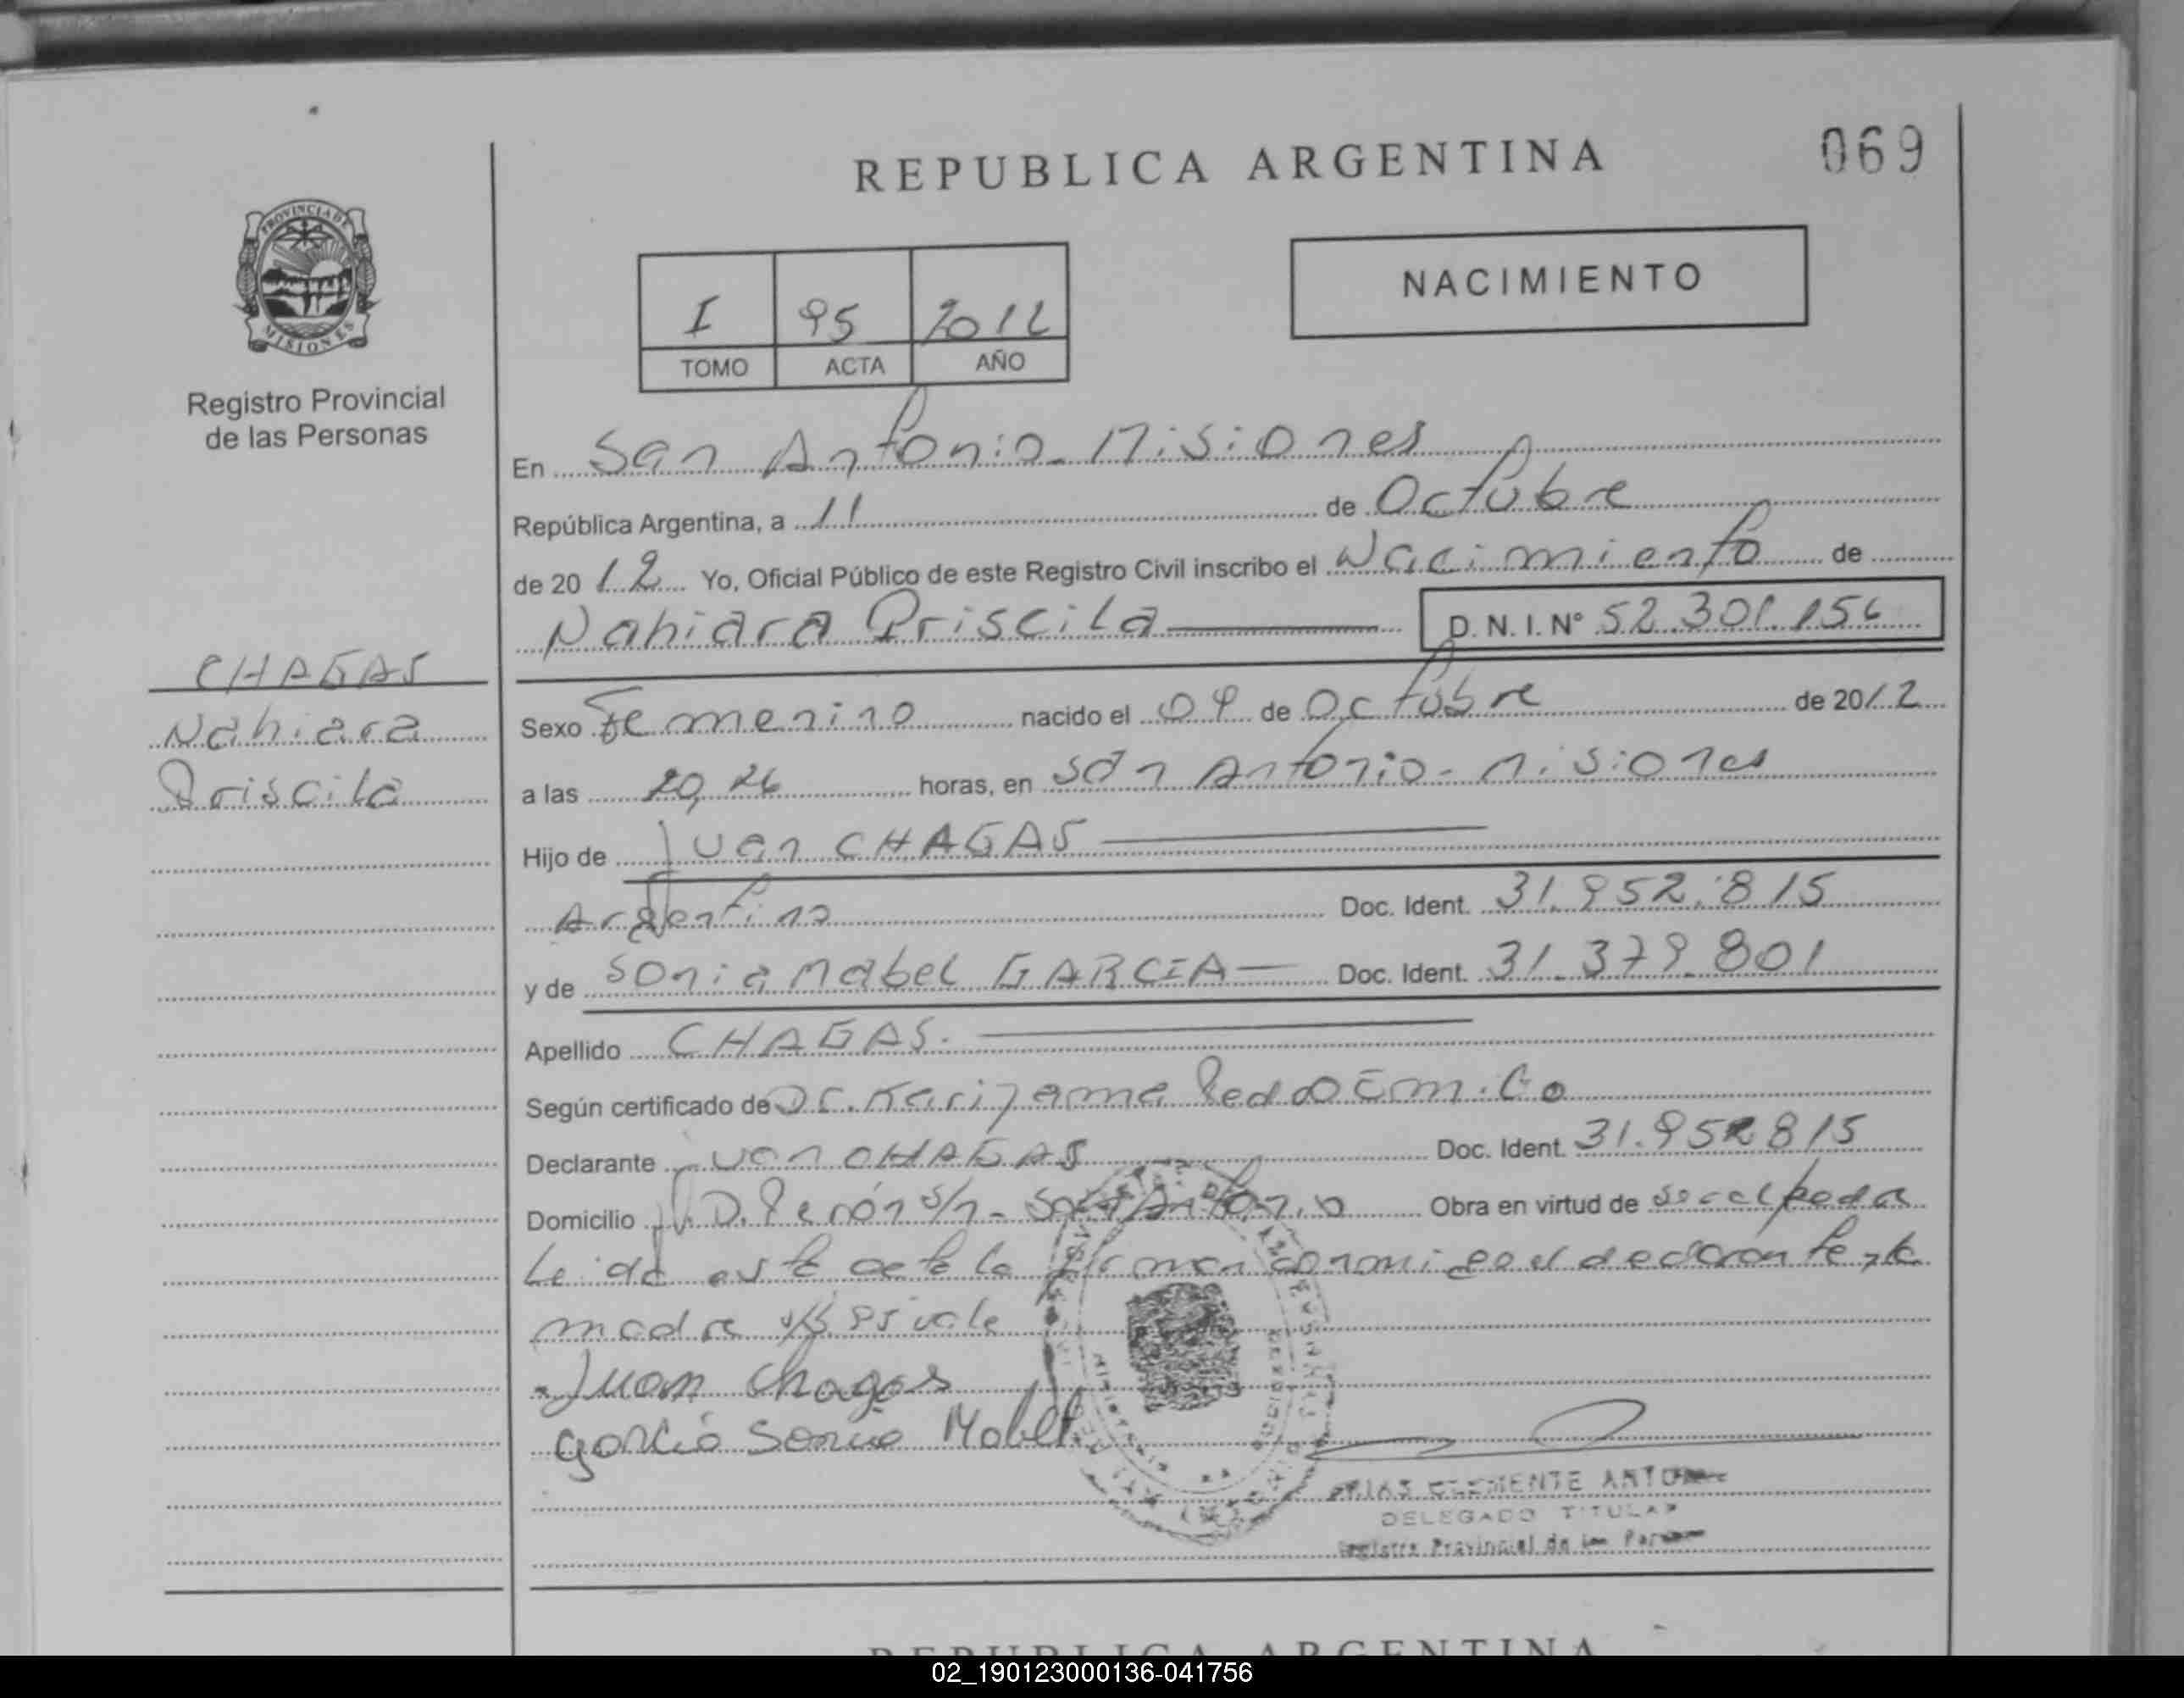 REPUBLICA ARGENTINA
069
PROVINCIA DE
MISIONES
Registro Provincial
de las Personas
I 95 2012
TOMO ACTA AÑO
NACIMIENTO
En San Antonio - Misiones
República Argentina, a 11 de Octubre
de 20 12 Yo, Oficial Público de este Registro Civil inscribo el Nacimiento de
Nahiara Priscila D. N. I. Nº 52.301.156
CHAGAS
Nahiara
Priscila
Sexo Femenino nacido el 09 de Octubre de 2012
a las 20,26 horas, en San Antonio - Misiones
Hijo de Juan CHAGAS
Argentino Doc. Ident. 31.952.815
y de Sonia Mabel GARCIA Doc. Ident. 31.379.801
Apellido CHAGAS.
Según certificado de Dr.
Declarante Juan CHAGAS Doc. Ident. 31.952815
Domicilio J.D. Perón s/n - San Antonio Obra en virtud de
Leida este acta la firman conmigo el declarante y la
madre vale
Juan Chagas
Garcia Sonia Mabel
CLEMENTE
DELEGADO TITULAR
Registro Provincial de las
REPUBLICA ARGENTINA
02_190123000136-041756